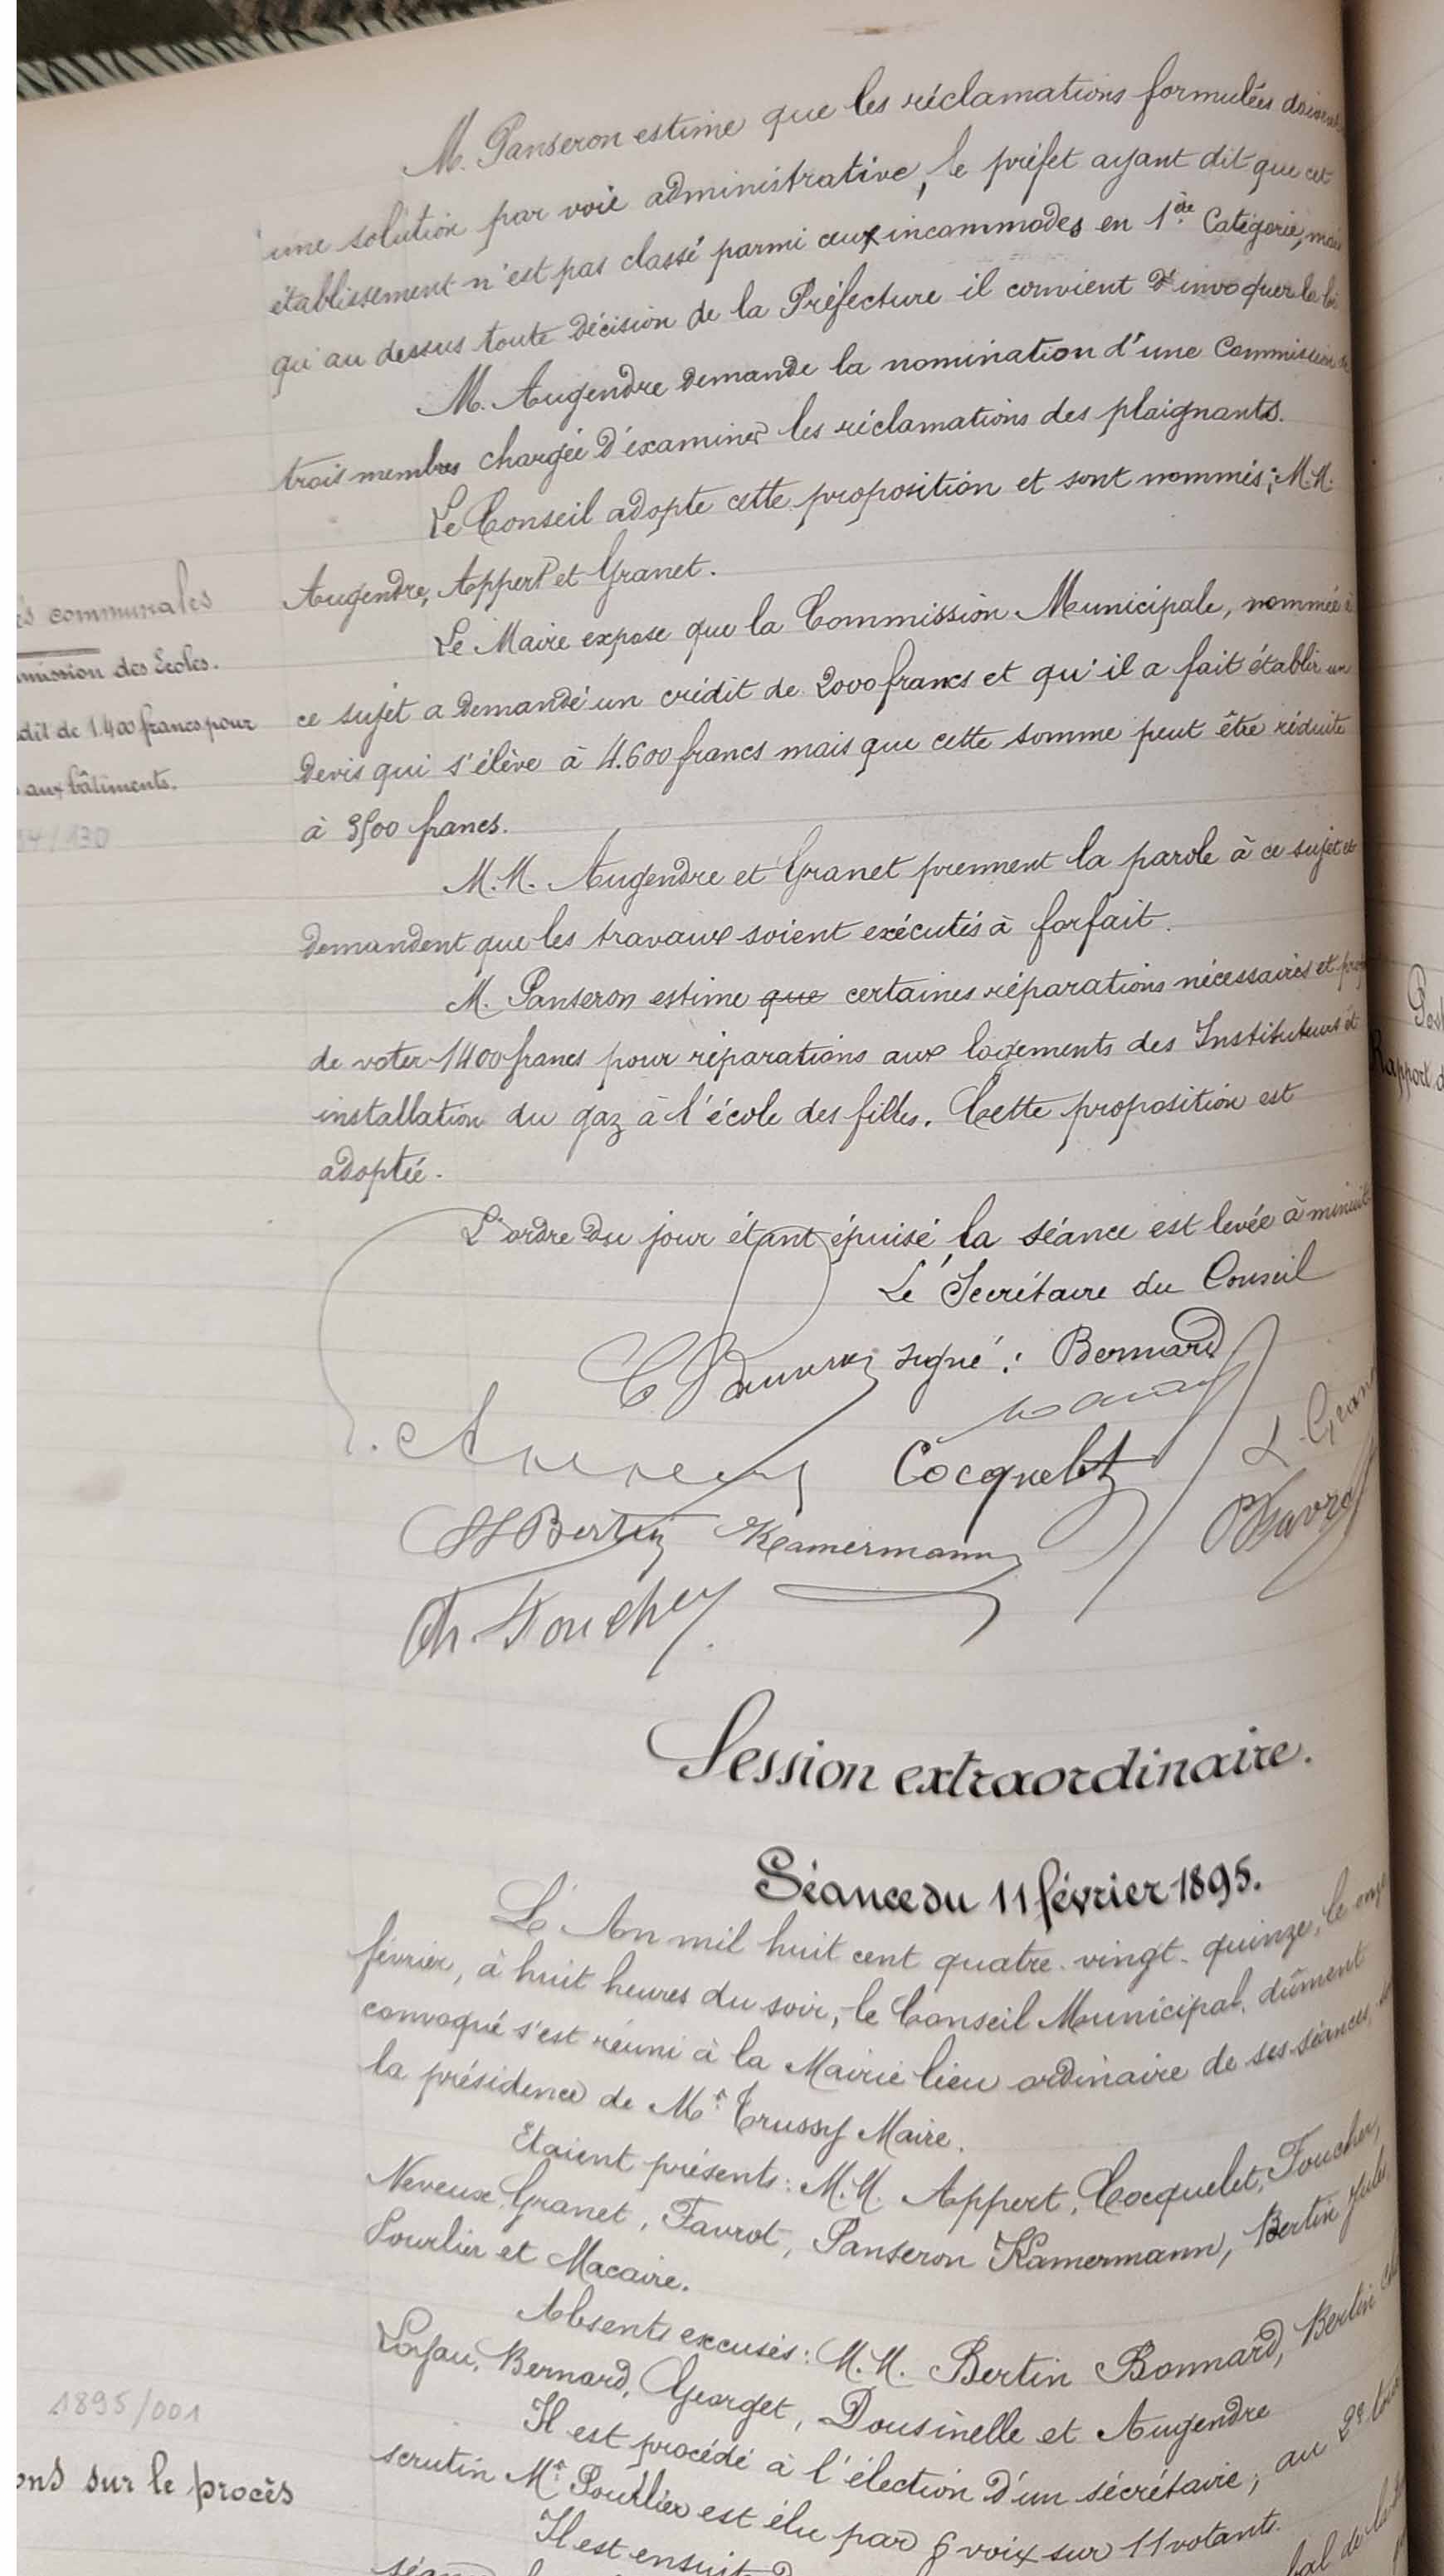 M. Panseron estime que les réclamations formulées doivent
une solution par voie administrative, le préfet ayant dit que cet
établissement n'est pas classé parmi ceux incommodes en 1ère Catégorie, mais
qu'au dessus toute décision de la Préfecture il convient d'invoquer la loi
M. Augendre demande la nomination d'une Commission de
trois membres chargée d'examiner les réclamations des plaignants.
Le Conseil adopte cette proposition et sont nommés; M.M.
Augendre, Appert et Granet.
es communales
mission des Ecoles.
dit de 1.400 francs pour
aux bâtiments.
/130
Le Maire expose que la Commission Municipale, nommée à
ce sujet a demandé un crédit de 2000 francs et qu'il a fait établir un
devis qui s'élève à 4.600 francs mais que cette somme peut être réduite
à 3500 francs.
M.M. Augendre et Granet prennent la parole à ce sujet et
demandent que les travaux soient exécutés à forfait.
M. Panseron estime que certaines réparations nécessaires et
de voter 1400 francs pour réparations aux logements des Instituteurs et
installation du gaz à l'école des filles. Cette proposition est
adoptée.
L'ordre du jour étant épuisé la séance est levée à minuit
Le Secrétaire du Conseil
signé : Bernard
Cocquelet
L Gran
JBertin Kamermann Favrot
Ch. Foucher
Post
Rapport d
Session extraordinaire.
Séance du 11 février 1895.
L'An mil huit cent quatre-vingt-quinze, le onze
février, à huit heures du soir, le Conseil Municipal, dûment
convoqué s'est réuni à la Mairie lieu ordinaire de ses séances,
la présidence de Mr. Trussy Maire.
Etaient présents: M.M. Appert, Cocquelet, Foucher,
Neveux, Granet, Favrot, Panseron Kamermann, Bertin Jules,
Pourlier et Macaire.
Absents excusés: M.M. Bertin Bonnard, Bertin
Loyau, Bernard, Georget, Dousinelle et Augendre
Il est procédé à l'élection d'un sécrétaire; au 2e. tour
scrutin Mr. Pourlier est élu par 6 voix sur 11 votants.
1895/001
ons sur le procès
Il est ensuit